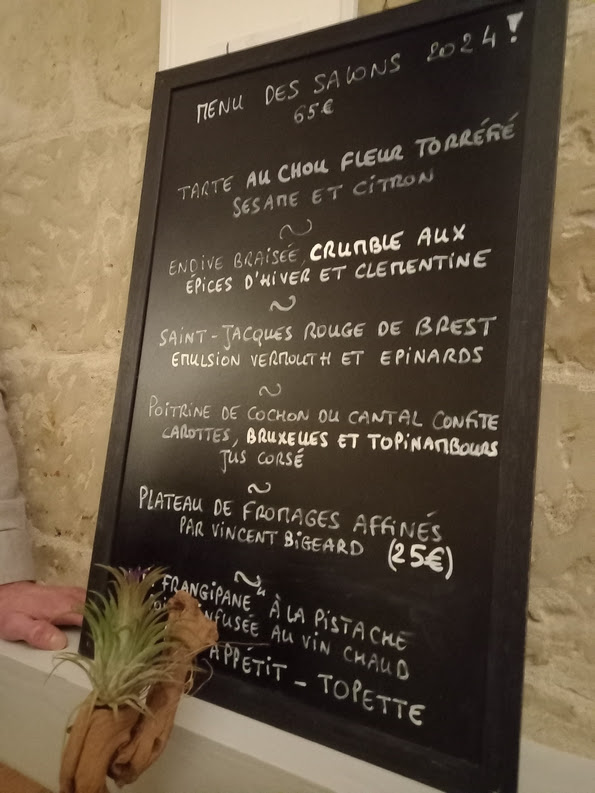 MENU DES SALONS 2024!
65€
TARTE AU CHOU FLEUR TORRÉFIÉ
SESAME ET CITRON
~
ENDIVE BRAISÉE, CRUMBLE AUX
ÉPICES D'HIVER ET CLEMENTINE
~
SAINT-JACQUES ROUGE DE BREST
EMULSION VERMOUTH ET EPINARDS
~
POITRINE DE COCHON DU CANTAL CONFITE
CAROTTES, BRUXELLES ET TOPINAMBOURS
JUS CORSÉ
~
PLATEAU DE FROMAGES AFFINÉS
PAR VINCENT BIGEARD (25€)
~
FRANGIPANE" À LA PISTACHE
INFUSÉE AU VIN CHAUD
APPÉTIT - TOPETTE